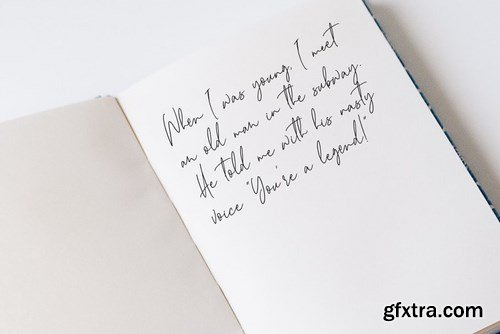 When I was young, I meet
an old man in the subway.
He told me with his nasty
voice "You're a legend!"
gfxtra.com